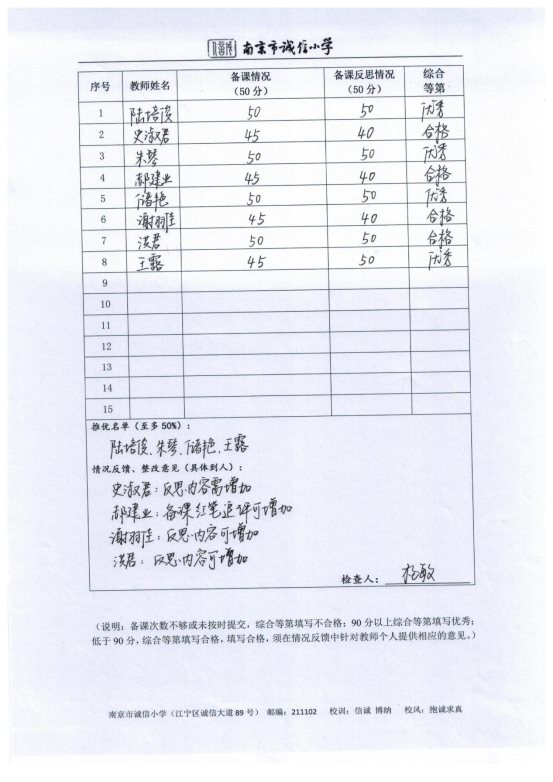 南京市诚信小学
序号 教师姓名 备课情况（50 分） 备课反思情况（50 分） 综合等第
1 陆培俊 50 50 优秀
2 史淑君 45 40 合格
3 朱琴 50 50 优秀
4 郝建业 45 40 合格
5 艳 50 50 优秀
6 谢羽佳 45 40 合格
7 洪君 50 50 合格
8 王露 45 50 优秀
9
10
11
12
13
14
15
推优名单（至多 50%）：
陆培俊、朱琴、艳、王露
情况反馈、整改意见（具体到人）：
史淑君：反思内容需增加
郝建业：备课红笔追评可增加
谢羽佳：反思内容可增加
洪君：反思内容可增加
检查人：敏
（说明：备课次数不够或未按时提交，综合等第填写不合格；90 分以上综合等第填写优秀；
低于 90 分，综合等第填写合格，填写合格，须在情况反馈中针对教师个人提供相应的意见。）
南京市诚信小学（江宁区诚信大道 89 号） 邮编：211102 校训：信诚 博纳 校风：抱诚求真